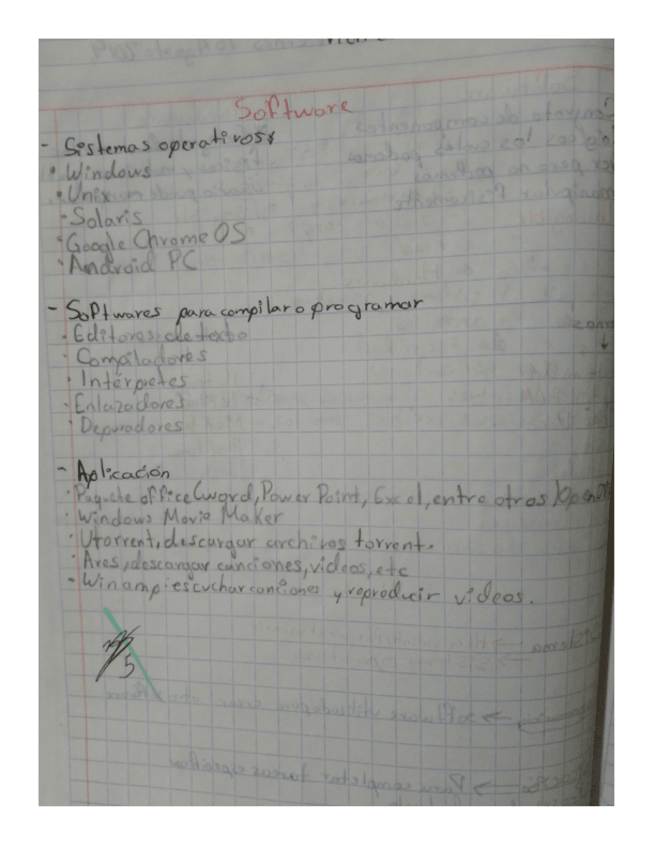 Software
- Sistemas operativos
· Windows
· Unix
· Solaris
· Google Chrome OS
· Android PC
- Softwares para compilar o programar
· Editores de texto
· Compiladores
· Intérpretes
· Enlazadores
· Depuradores
- Aplicación
· Paquete office (word, Power Point, Excel, entre otros)
· Windows Movie Maker
· Utorrent, descargar archivos torrent.
· Ares, descargar canciones, videos, etc
· Winamp: escuchar canciones y reproducir videos.
5